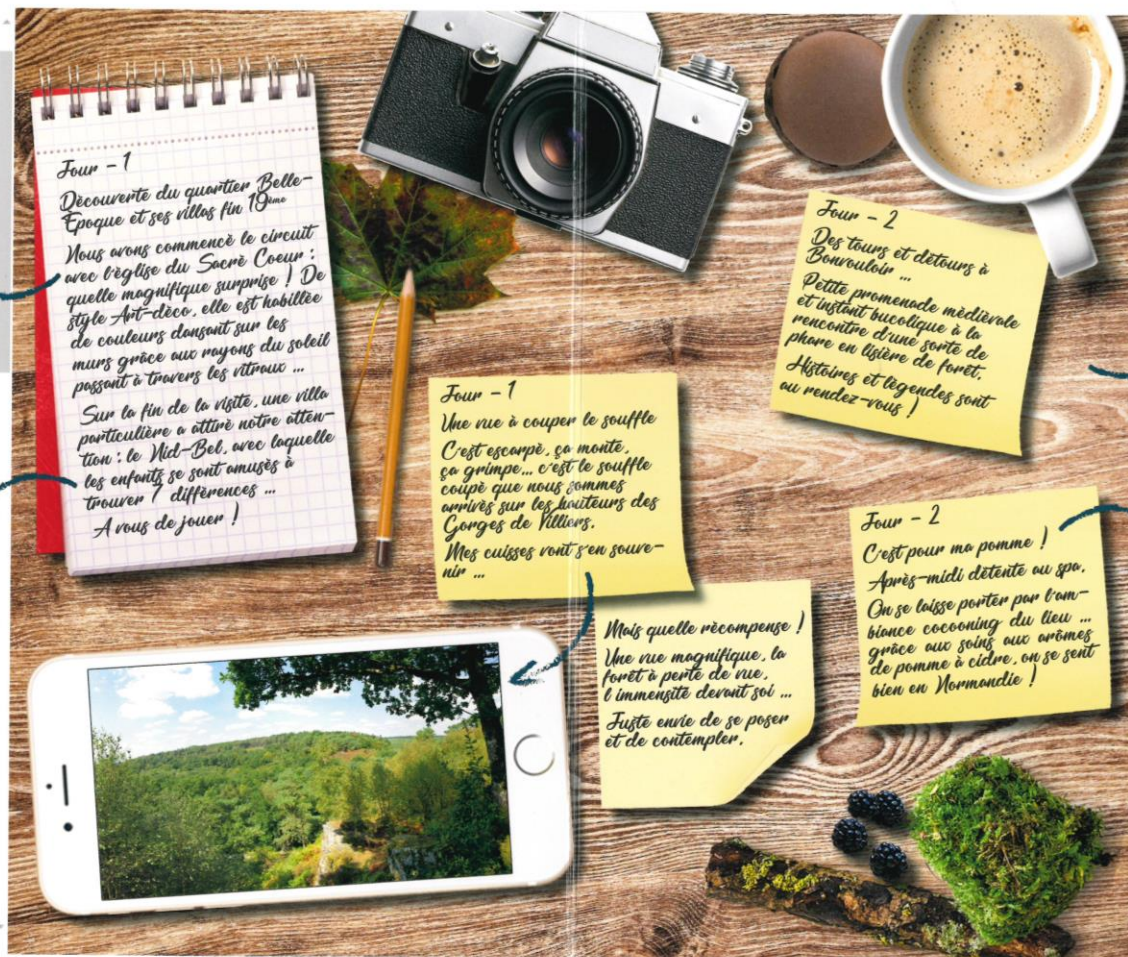 Jour - 1
Découverte du quartier Belle-
Epoque et ses villas fin 19ème
Nous avons commencé le circuit
avec l'église du Sacré Coeur :
quelle magnifique surprise ! De
style Art-déco, elle est habillée
de couleurs dansant sur les
murs grâce aux rayons du soleil
passant à travers les vitraux ...
Sur la fin de la visite, une villa
particulière a attiré notre atten-
tion : le Nid-Bel, avec laquelle
les enfants se sont amusés à
trouver 7 différences ...
A vous de jouer !
Jour - 1
Une vue à couper le souffle
C'est escarpé, ça monte,
ça grimpe... c'est le souffle
coupé que nous sommes
arrivés sur les hauteurs des
Gorges de Villiers.
Mes cuisses vont s'en souve-
nir ...
Mais quelle récompense !
Une vue magnifique, la
forêt à perte de vue,
l'immensité devant soi ...
Juste envie de se poser
et de contempler.
Jour - 2
Des tours et détours à
Bonvouloir ...
Petite promenade médiévale
et instant bucolique à la
rencontre d'une sorte de
phare en lisière de forêt.
Histoires et légendes sont
au rendez-vous !
Jour - 2
C'est pour ma pomme !
Après-midi détente au spa.
On se laisse porter par l'am-
biance cocooning du lieu ...
grâce aux soins aux arômes
de pomme à cidre, on se sent
bien en Normandie !